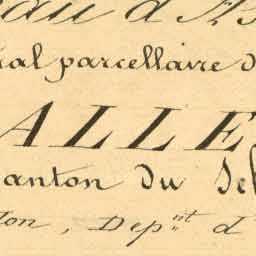 eau d'As
ral parcellaire d
ALLE
anton du Sel
ton, Dep.nt d'